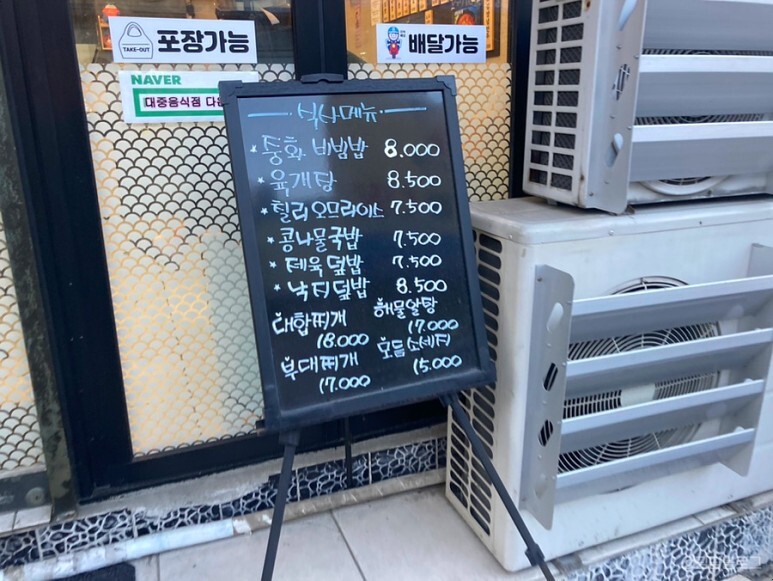 TAKE-OUT
포장가능
배달가능
NAVER
대중음식점 다
식사메뉴
* 중화 비빔밥 8.000
* 육개장 8.500
* 칠리오므라이스 7.500
* 콩나물국밥 7.500
* 제육덮밥 7.500
* 낙지덮밥 8.500
대합찌개 18.000
해물알탕 17.000
부대찌개 17.000
모듬소세지 15.000